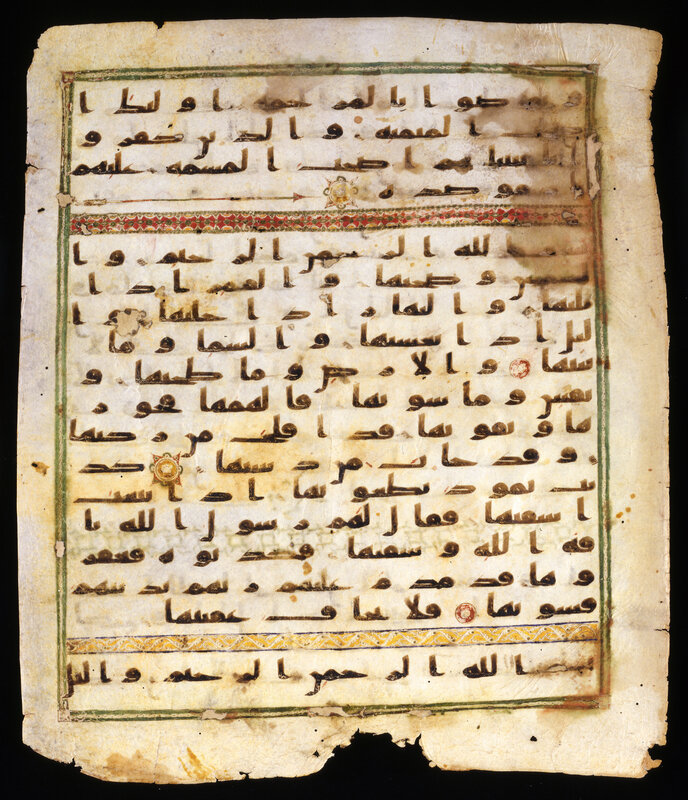 وتواصوا بالمرحمه اولئك ا
صحب الميمنه والذين كفرو
ا بايتنا هم اصحب المشمه عليهم
موصده
بسم الله الرحمن الرحيم وا
لشمس وضحيها والقمر اذا
تليها والنهار اذا جليها وا
ليل اذا يغشيها والسما وما
بنيها والارض وما طحيها و
نفس وما سويها فالهمها فجور
ها وتقويها قد افلح من زكيها
وقد خاب من دسيها كذ
بت ثمود بطغويها اذ انبعث
اشقيها فقال لهم رسول الله نا
قه الله وسقيها فكذبوه فعقر
وها فدمدم عليهم ربهم بذنبهم
فسويها فلا يخاف عقبيها
بسم الله الرحمن الرحيم واليل